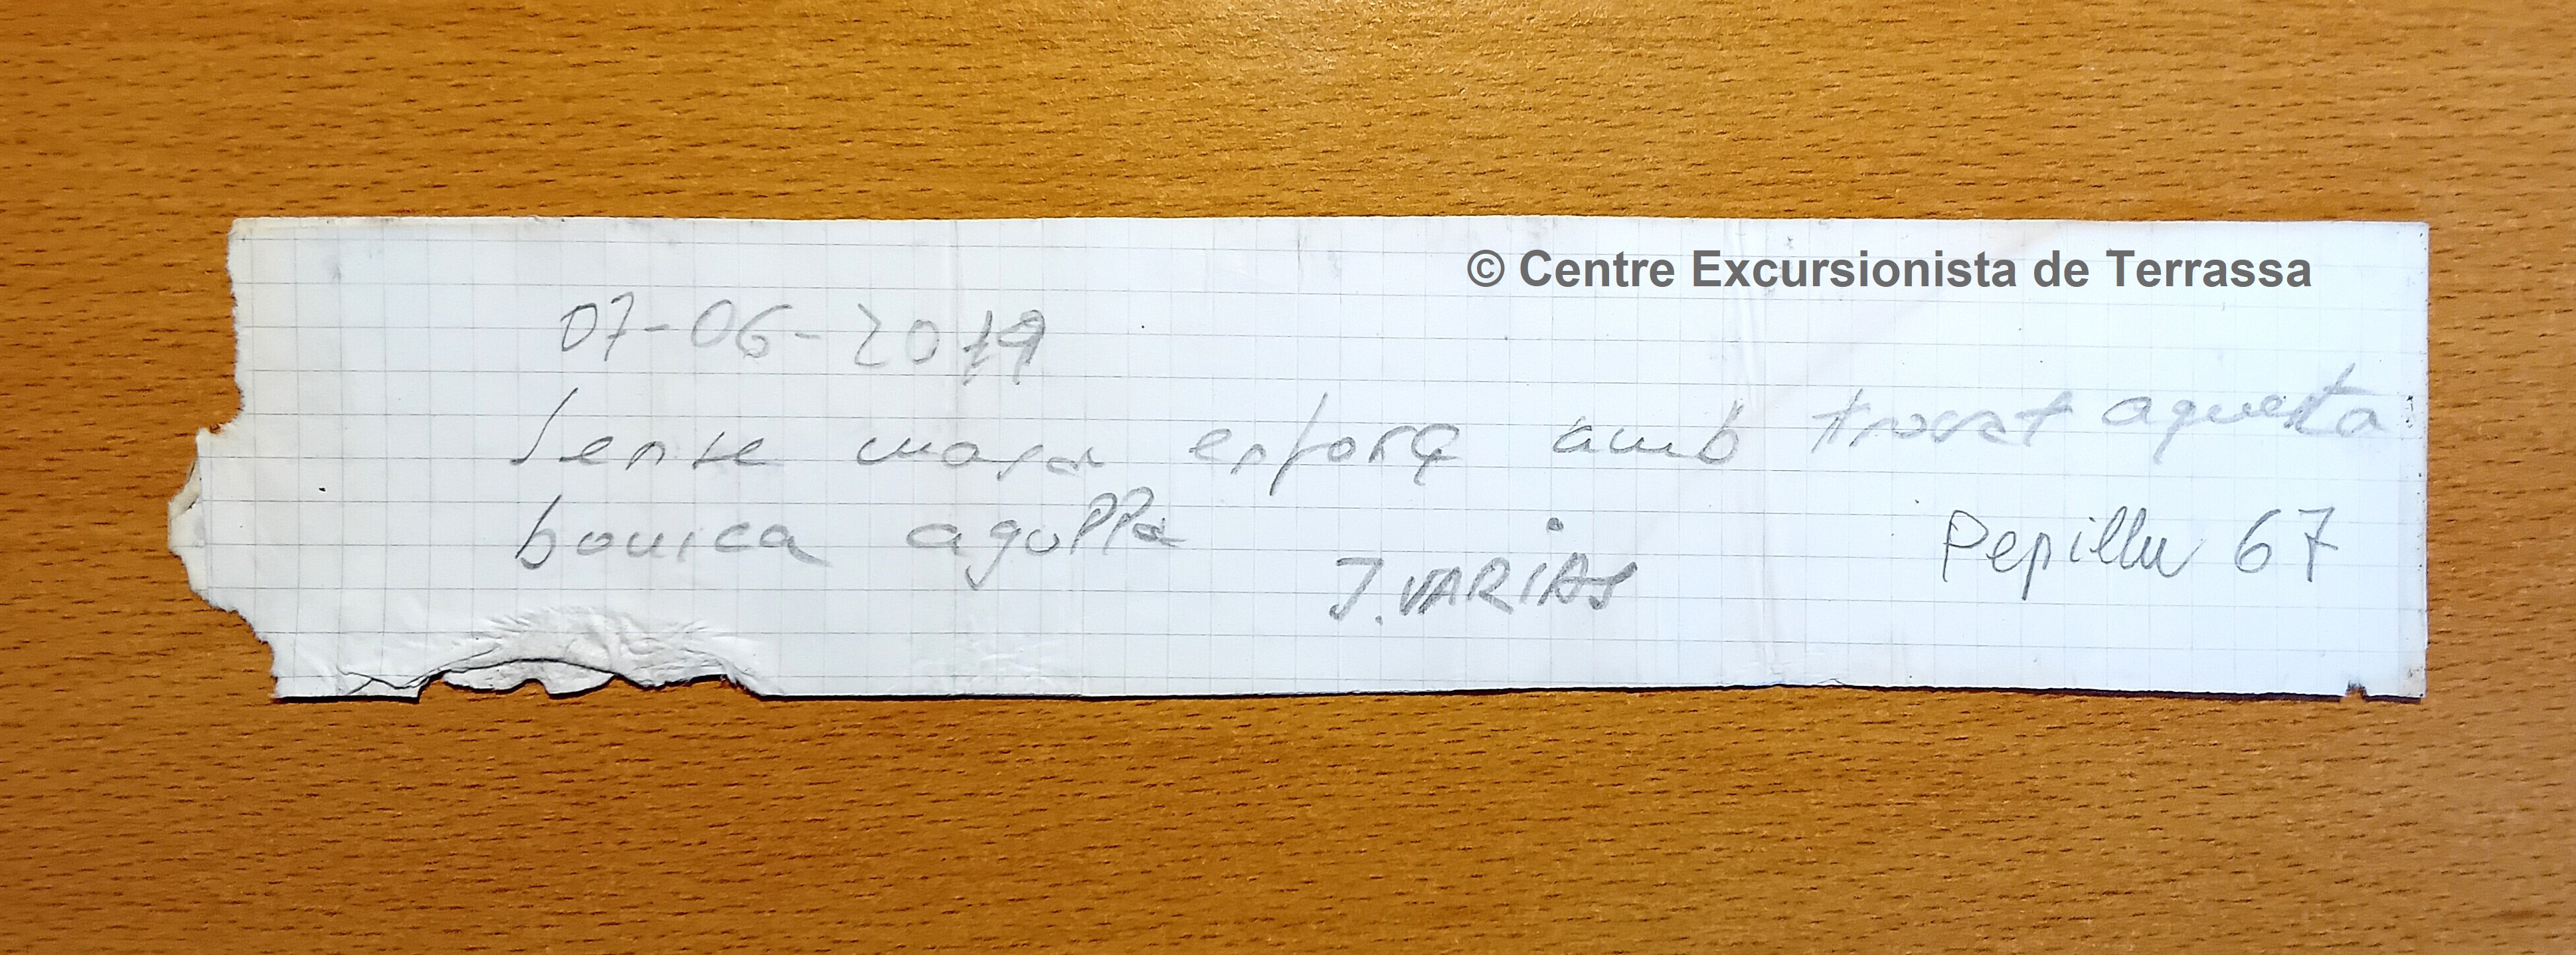 © Centre Excursionista de Terrassa
07-06-2019
Sense masa esforç amb trovat aquesta
bonica agulla
J. VARIAS
Pepillu 67